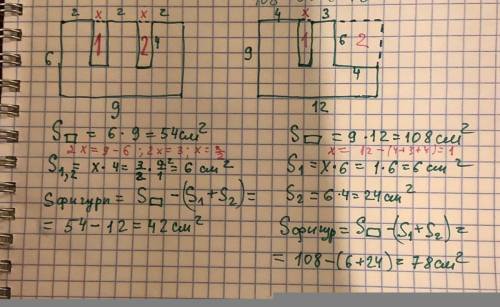 2 x 2 x 2
6 1 2 4
9
S▭ = 6 · 9 = 54 см²
2x = 9 - 6 ; 2x = 3 ; x = 3/2
S₁,₂ = x · 4 = 3/2 · 4/1 = 6 см²
Sфигуры = S▭ - (S₁ + S₂) =
= 54 - 12 = 42 см²
4 x 3
9 1 6 2
4
12
S▭ = 9 · 12 = 108 см²
x = 12 - (4+3+4) = 1
S₁ = x · 6 = 1 · 6 = 6 см²
S₂ = 6 · 4 = 24 см²
Sфигур = S▭ - (S₁ + S₂) =
= 108 - (6 + 24) = 78 см²